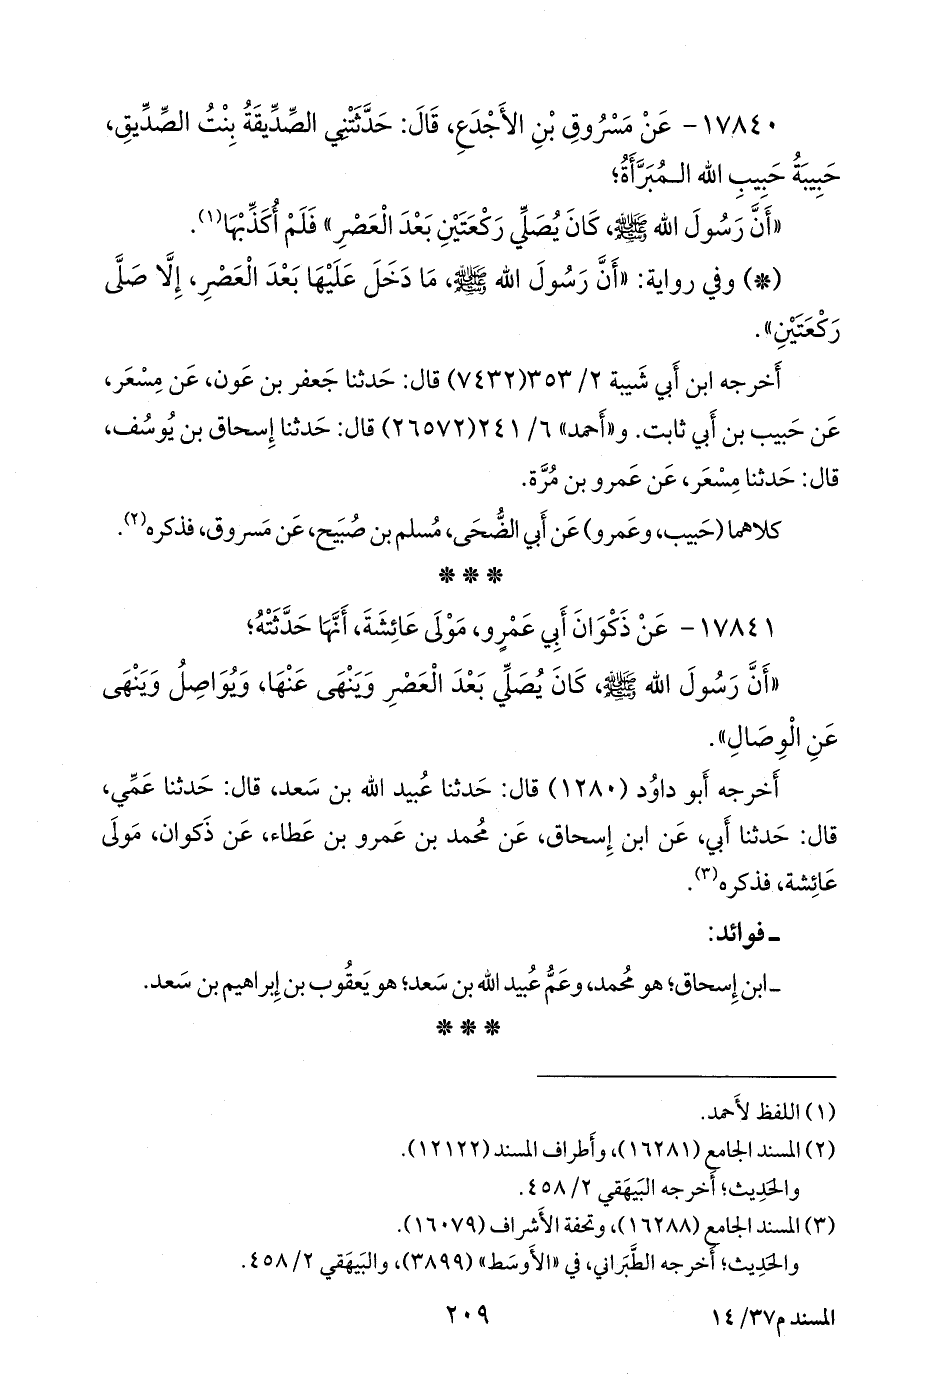 ١٧٨٤٠- عَنْ مَسْرُوقِ بْنِ الأَجْدَعِ، قَالَ: حَدَّثَتْنِي الصِّدِّيقَةُ بِنْتُ الصِّدِّيقِ،
حَبِيبَةُ حَبِيبِ الله الـمُبَرَّأَةُ؛
«أَنَّ رَسُولَ الله ﷺ، كَانَ يُصَلِّي رَكْعَتَيْنِ بَعْدَ الْعَصْرِ» فَلَمْ أُكَذِّبْهَا(١).
(*) وفي رواية: «أَنَّ رَسُولَ الله ﷺ، مَا دَخَلَ عَلَيْهَا بَعْدَ الْعَصْرِ، إِلَّا صَلَّى
رَكْعَتَيْنِ».
أَخرجه ابن أَبي شَيبة ٢/ ٣٥٣(٧٤٣٢) قال: حَدثنا جَعفر بن عَون، عَن مِسْعَر،
عَن حَبيب بن أَبي ثابت. و«أَحمد» ٦/ ٢٤١(٢٦٥٧٢) قال: حَدثنا إِسحاق بن يُوسُف،
قال: حَدثنا مِسْعَر، عَن عَمرو بن مُرَّة.
كلاهما (حَبيب، وعَمرو) عَن أَبي الضُّحَى، مُسلم بن صُبَيح، عَن مَسروق، فذكره(٢).
* * *
١٧٨٤١- عَنْ ذَكْوَانَ أَبِي عَمْرٍو، مَوْلَى عَائِشَةَ، أَنَّهَا حَدَّثَتْهُ؛
«أَنَّ رَسُولَ الله ﷺ، كَانَ يُصَلِّي بَعْدَ الْعَصْرِ وَيَنْهَى عَنْهَا، وَيُوَاصِلُ وَيَنْهَى
عَنِ الْوِصَالِ».
أَخرجه أَبو داوُد (١٢٨٠) قال: حَدثنا عُبيد الله بن سَعد، قال: حَدثنا عَمِّي،
قال: حَدثنا أَبي، عَن ابن إِسحاق، عَن مُحمد بن عَمرو بن عَطاء، عَن ذَكوان، مَولَى
عَائِشة، فذكره(٣).
ـ فوائد:
ـ ابن إِسحاق؛ هو مُحمد، وعَمُّ عُبيد الله بن سَعد؛ هو يَعقُوب بن إِبراهيم بن سَعد.
* * *
(١) اللفظ لأَحمد.
(٢) المسند الجامع (١٦٢٨١)، وأَطراف المسند (١٢١٢٢).
والحَدِيث؛ أَخرجه البَيهَقي ٢/ ٤٥٨.
(٣) المسند الجامع (١٦٢٨٨)، وتحفة الأَشراف (١٦٠٧٩).
والحَدِيث؛ أَخرجه الطَّبَراني، في «الأَوسَط» (٣٨٩٩)، والبَيهَقي ٢/ ٤٥٨.
المسند م٣٧/ ١٤
٢٠٩